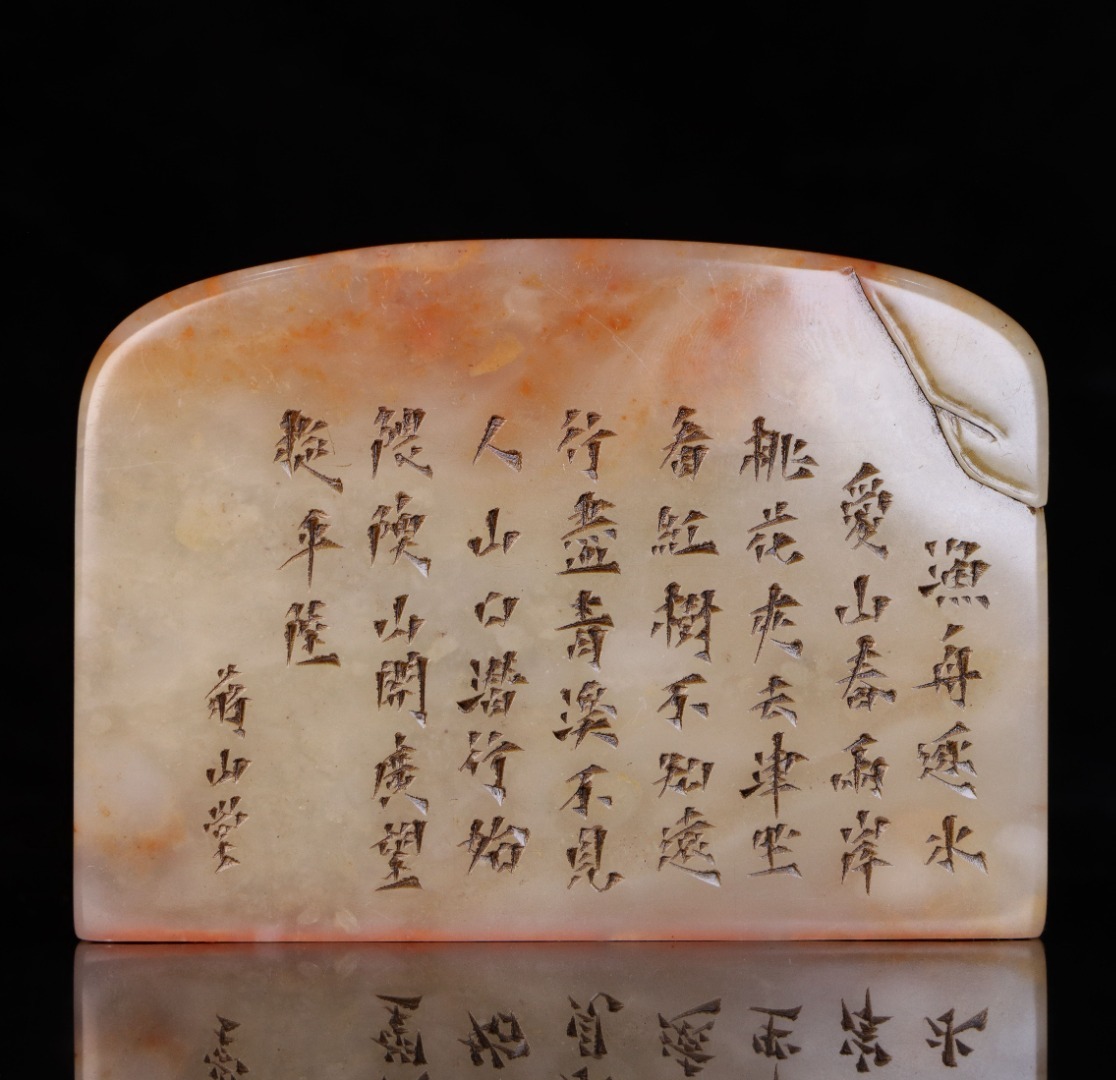 漁舟逐水
愛山春兩岸
桃花夾去津坐
看紅樹不知遠
行盡青溪不見
人山口潛行始
隈隩山開廣望
旋平陸
蔣山堂